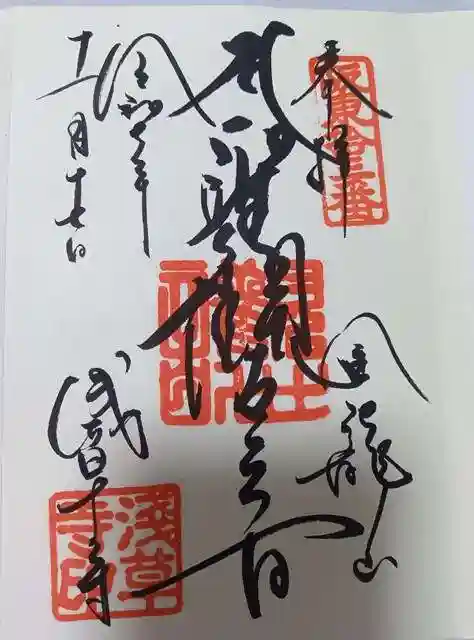 奉拝
坂東拾三番
金龍山
聖観世音
令和七年
十一月十七日
浅草寺
浅草寺印